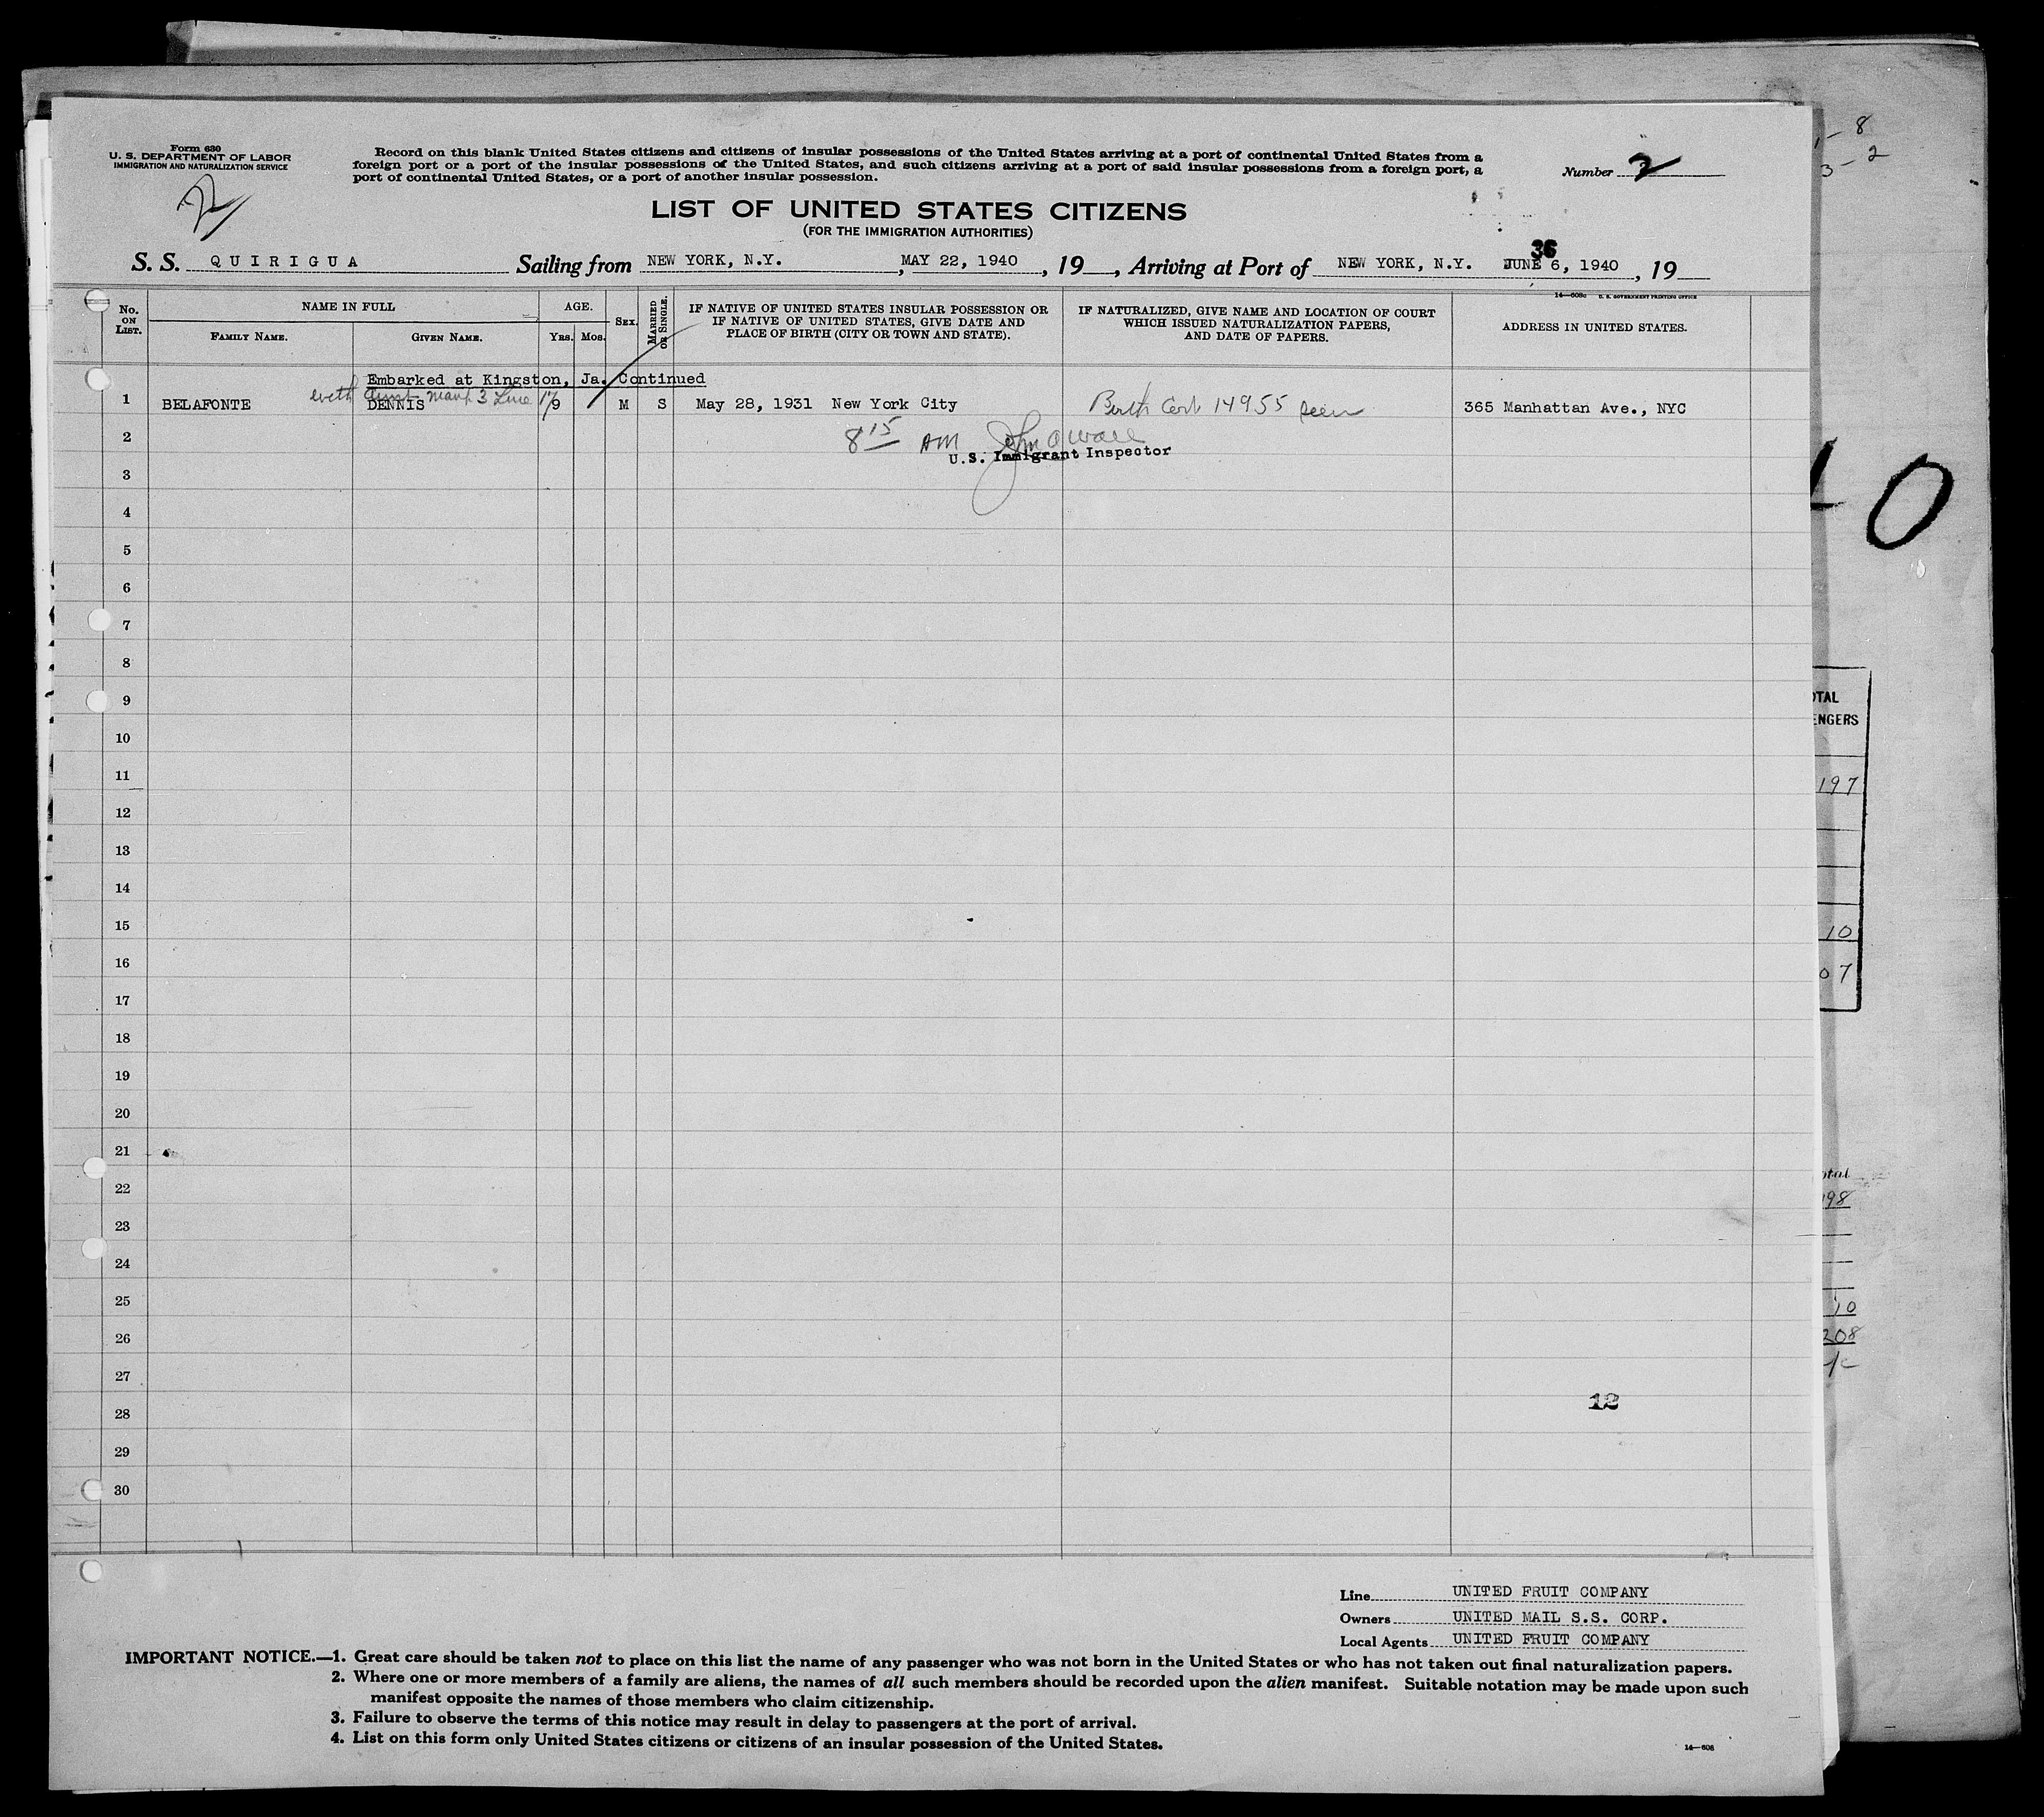 8
3 - 2
Form 630
U. S. DEPARTMENT OF LABOR
IMMIGRATION AND NATURALIZATION SERVICE
2
Record on this blank United States citizens and citizens of insular possessions of the United States arriving at a port of continental United States from a
foreign port or a port of the insular possessions of the United States, and such citizens arriving at a port of said insular possessions from a foreign port, a
port of continental United States, or a port of another insular possession.
Number 2
LIST OF UNITED STATES CITIZENS
(FOR THE IMMIGRATION AUTHORITIES)
36
S. S. QUIRIGUA Sailing from NEW YORK, N.Y. , MAY 22, 1940 , 19 , Arriving at Port of NEW YORK, N.Y. JUNE 6, 1940 , 19
14—608c U. S. GOVERNMENT PRINTING OFFICE
No. ON LIST.
NAME IN FULL
FAMILY NAME. GIVEN NAME.
AGE.
YRS. MOS.
SEX.
MARRIED OR SINGLE.
IF NATIVE OF UNITED STATES INSULAR POSSESSION OR
IF NATIVE OF UNITED STATES, GIVE DATE AND
PLACE OF BIRTH (CITY OR TOWN AND STATE).
IF NATURALIZED, GIVE NAME AND LOCATION OF COURT
WHICH ISSUED NATURALIZATION PAPERS,
AND DATE OF PAPERS.
ADDRESS IN UNITED STATES.
Embarked at Kingston, Ja. Continued
with Aunt Manf 3 Line 17
1 BELAFONTE DENNIS 9 M S May 28, 1931 New York City Birth Cert 14955 seen 365 Manhattan Ave., NYC
2 8 15 AM
U.S. Immigrant Inspector
3
4
5
6
7
8
9
10
11
12
13
14
15
16
17
18
19
20
21
22
23
24
25
26
27
28 12
29
30
10
TOTAL
ENGERS
197
10
07
otal
198
10
208
Line UNITED FRUIT COMPANY
Owners UNITED MAIL S.S. CORP.
Local Agents UNITED FRUIT COMPANY
IMPORTANT NOTICE.—1. Great care should be taken not to place on this list the name of any passenger who was not born in the United States or who has not taken out final naturalization papers.
2. Where one or more members of a family are aliens, the names of all such members should be recorded upon the alien manifest. Suitable notation may be made upon such
manifest opposite the names of those members who claim citizenship.
3. Failure to observe the terms of this notice may result in delay to passengers at the port of arrival.
4. List on this form only United States citizens or citizens of an insular possession of the United States.
14—608